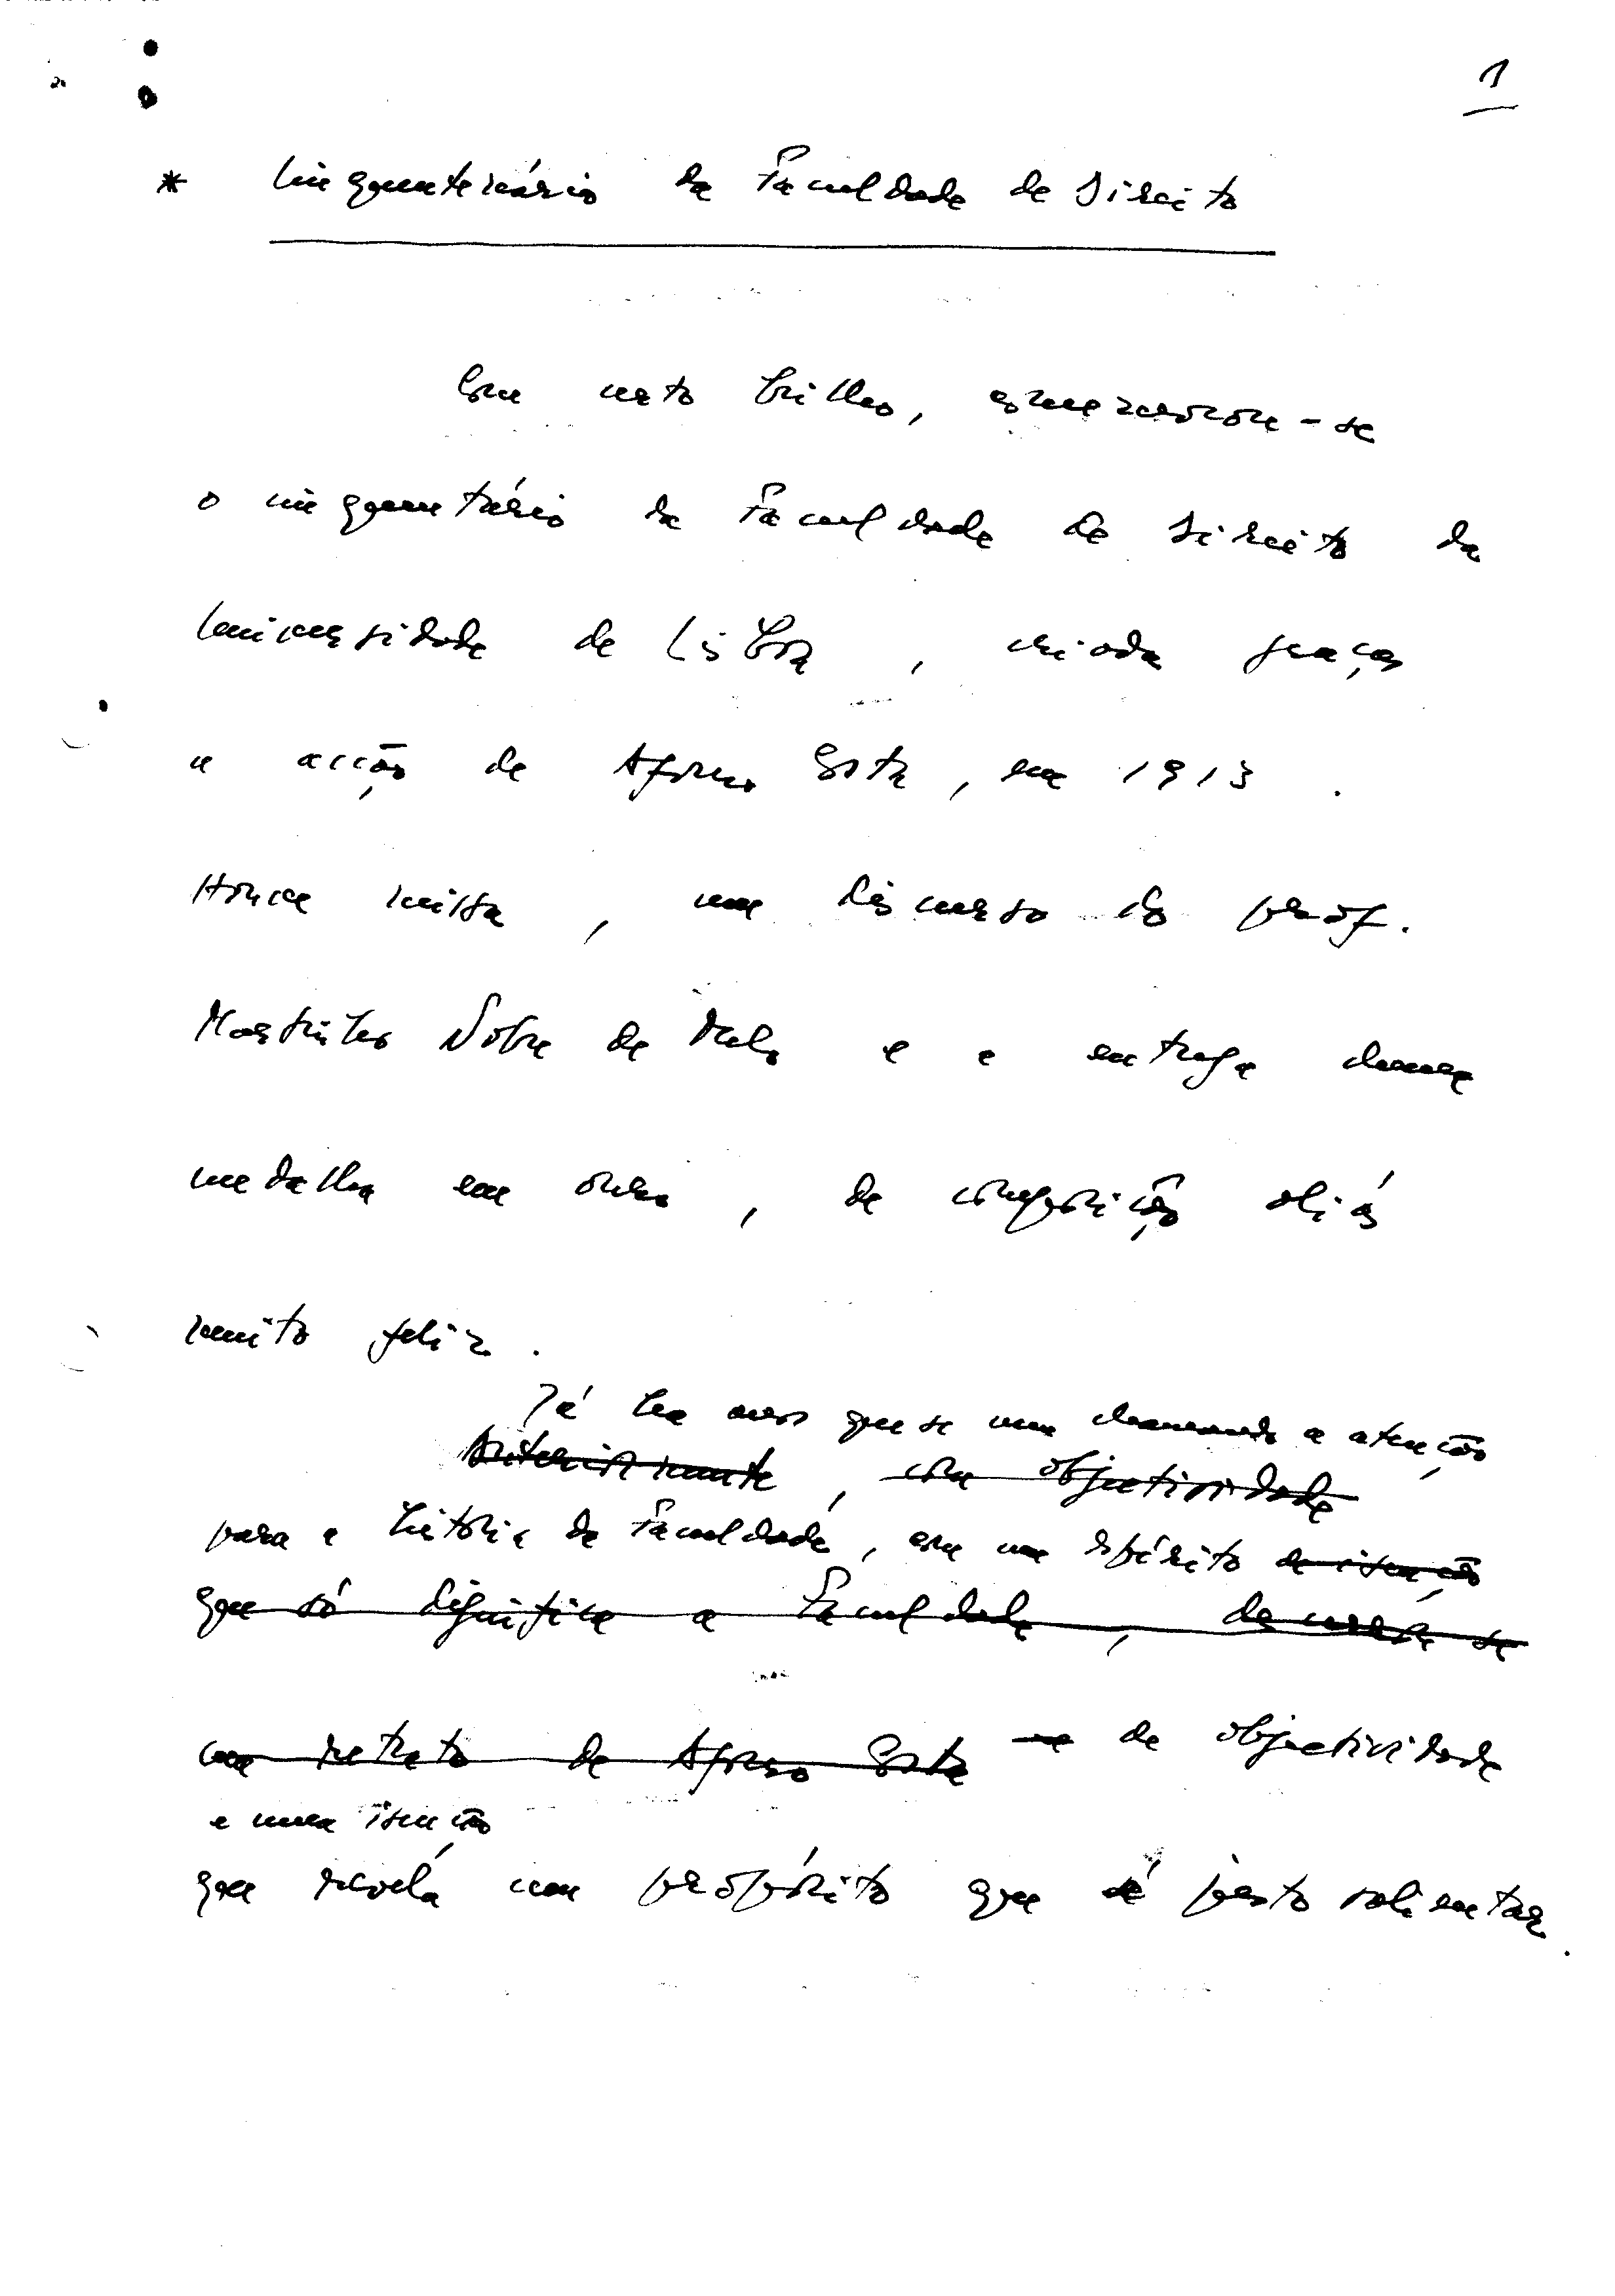 1
* Cinquentenário da Faculdade de Direito
Com certo brilho, comemorou-se
o cinquentário da Faculdade de Direito da
Universidade de Lisboa, criada graças
a acção de Afonso Costa, em 1913.
Houve missa, um discurso do prof.
Martinho Nobre de Melo e a entrega duma
medalha em ouro, de composição aliás
muito feliz.
Já há anos que se vem chamando a atenção
Anteriormente, com objectividade
para a história da Faculdade, com um espírito de isenção
que só dignifica a Faculdade, se
um retrato de Afonso Costa de objectividade
e numa isenção
que revela um propósito que é justo salientar.